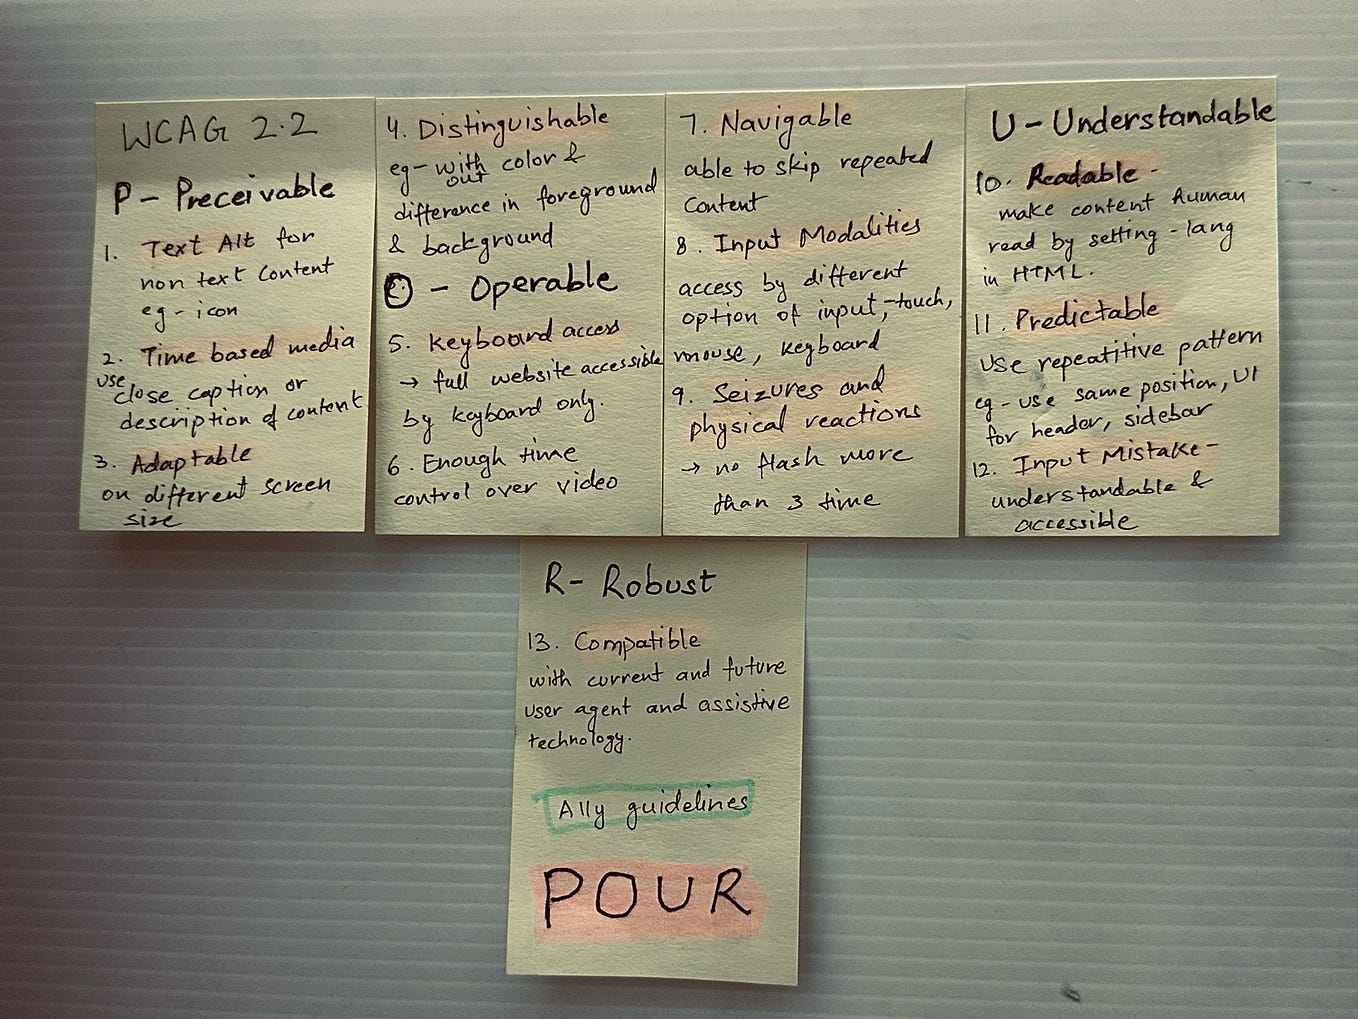 WCAG 2.2
P - Preceivable
1. Text Alt for
non text Content
eg - icon
2. Time based media
use close caption or
description of content
3. Adaptable
on different screen
size
4. Distinguishable
eg - without color &
difference in foreground
& background
O - Operable
5. Keyboard access
→ full website accessible
by keyboard only.
6. Enough time
control over video
7. Navigable
able to skip repeated
Content
8. Input Modalities
access by different
option of input, touch,
mouse, keyboard
9. Seizures and
physical reactions
→ no flash more
than 3 time
U - Understandable
10. Readable -
make content human
read by setting - lang
in HTML.
11. Predictable
Use repeatitive pattern
eg - use same position, UI
for header, sidebar
12. Input Mistake -
understandable &
accessible
R - Robust
13. Compatible
with current and future
user agent and assistive
technology.
A11y guidelines
POUR